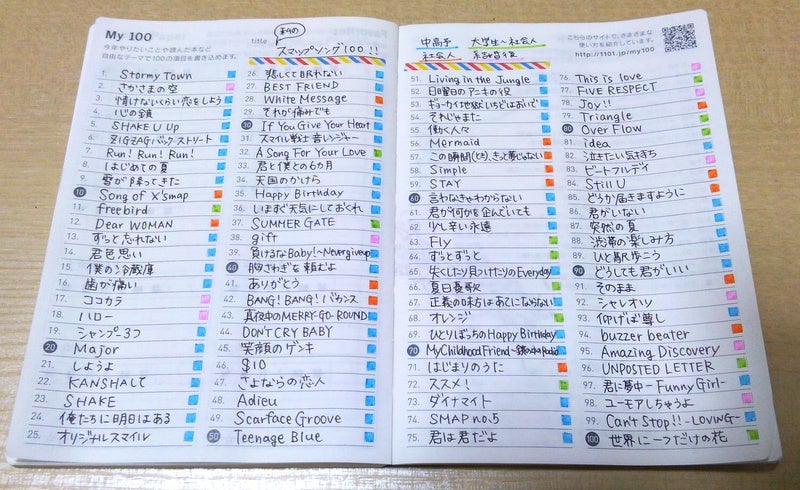 My 100
今年やりたいことや読んだ本など
自由なテーマで100の項目を書き込めます。
title
スマップソング100!!
1. Stormy Town
2. さかさまの空
3. 情けないくらい恋をしよう
4. 心の鏡
5. SHAKE U Up
6. ZIGZAGバックストリート
7. Run! Run! Run!
8. はじめての夏
9. 雪が降ってきた
10 Song of X'smap
11. freebird
12. Dear WOMAN
13. ずっと忘れない
14. 君色思い
15. 僕の冷蔵庫
16. 歯が痛い
17. ココカラ
18. ハロー
19. シャンプー3つ
20 Major
21. しようよ
22. KANSHAして
23. SHAKE
24. 俺たちに明日はある
25. オリジナルスマイル
26. 悲しくて眠れない
27. BEST FRIEND
28. White Message
29. それが痛みでも
30 If You Give Your Heart
31. スマイル戦士音レンジャー
32. A Song For Your Love
33. 君と僕との6カ月
34. 天国のかけら
35. Happy Birthday
36. いますぐ天気にしておくれ
37. SUMMER GATE
38. gift
39. 負けるなBaby!~Never give up
40 胸さわぎを頼むよ
41. ありがとう
42. BANG! BANG! バカンス
43. 真夜中のMERRY-GO-ROUND
44. DON'T CRY BABY
45. 笑顔のゲンキ
46. $10
47. さよならの恋人
48. Adieu
49. Scarface Groove
50 Teenage Blue
中高予 大学生~社会人
社会人
こちらのサイトで、さまざまな
使い方を紹介しています。
http://1101.jp/my100
51. Living in the Jungle
52. 日曜日のアニキの役
53. ギョーカイ地獄いちどはおいで
54. それじゃまた
55. 働く人々
56. Mermaid
57. この瞬間(とき)、きっと夢じゃない
58. Simple
59. STAY
60 言わなきゃわからない
61. 君が何かを企んでいても
62. 少し辛い永遠
63. Fly
64. ずっとずっと
65. 失くしたり見つけたりのEveryday
66. 夏日憂歌
67. 正義の味方はあてにならない
68. オレンジ
69. ひとりぼっちのHappy Birthday
70 My Childhood Friend
71. はじまりのうた
72. ススメ!
73. ダイナマイト
74. SMAP no.5
75. 君は君だよ
76. This is love
77. FIVE RESPECT
78. Joy!!
79. Triangle
80 Over Flow
81. idea
82. 泣きたい気持ち
83. ビートフルデイ
84. Still U
85. どうか届きますように
86. 君がいない
87. 突然の夏
88. 渋滞の楽しみ方
89. ひと駅歩こう
90 どうしても君がいい
91. そのまま
92. シャレオツ
93. 仰げば尊し
94. buzzer beater
95. Amazing Discovery
96. UNPOSTED LETTER
97. 君に夢中 - Funny Girl-
98. ユーモアしちゃうよ
99. Can't Stop!! -LOVING-
100 世界に一つだけの花